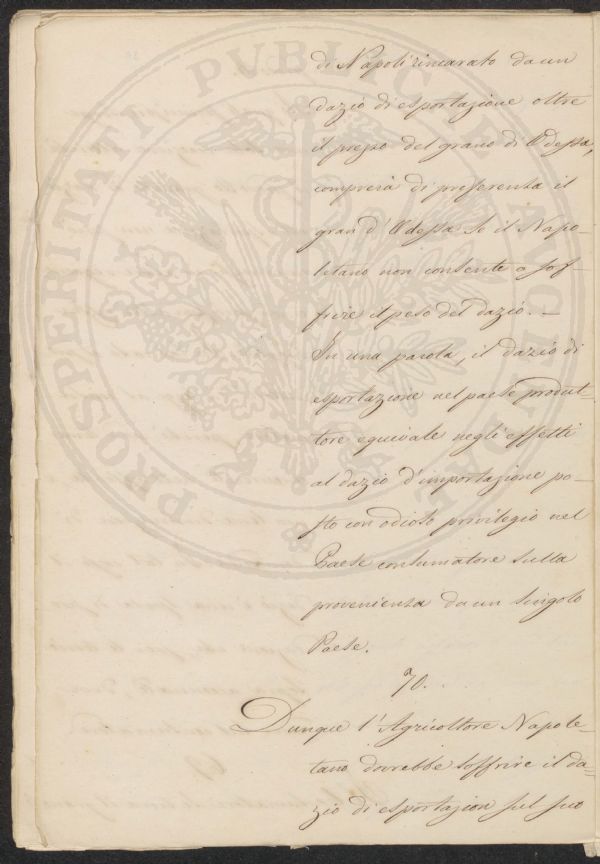 di Napoli rincarato da un
dazio di esportazione oltre
il prezzo del grano di Odessa,
comprerà di preferenza il
gran d'Odessa se il Napo-
letano non consente a sof-
frire il peso del dazio. —
In una parola, il dazio di
esportazione nel paese produt-
tore equivale negli effetti
al dazio d'importazione po-
sto con odioso privilegio nel
Paese consumatore sulla
provenienza da un singolo
Paese.
70.
Dunque l'Agricoltore Napole-
tano dovrebbe soffrire il da-
zio di esportazion sul suo
PROSPERITATI PVBLICAE